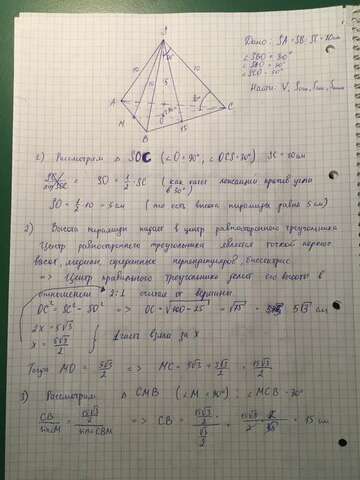 S
Дано: SA=SB=SC=10см
∠SBO=30°
∠SAO=30°
∠SCO=30°
Найти: V,
10
10
5
30°
A
C
O
M
B
15
1) Рассмотрим △ SOC (∠O=90°, ∠OCS=30°) SC=10см
SO=1/2·SC (как катет лежащий против угла
в 30°)
SO=1/2·10=5см (то есть высота пирамиды равна 5см)
2) Высота пирамиды падает в центр равностороннего треугольника
Центр равностороннего треугольника является точкой перес
высот, медиан, серединных перпендикуляров, биссектрис
=> Центр правильного треугольника делит его высоты в
отношении 2:1 считая от вершины
OC²=SC²-SO² => OC=√100-25=√75=5√3 см
2x=5√3
x=5√3/2
1 часть взята за x
Тогда MO=5√3/2 => MC=5√3+5√3/2=15√3/2
3) Рассмотрим △ CMB (∠M=90°): ∠MCB=30°
CB/sin∠M=15√3/2/sin∠CBM => CB=15√3/2/√3/2=15√3/2·2/√3=15 см